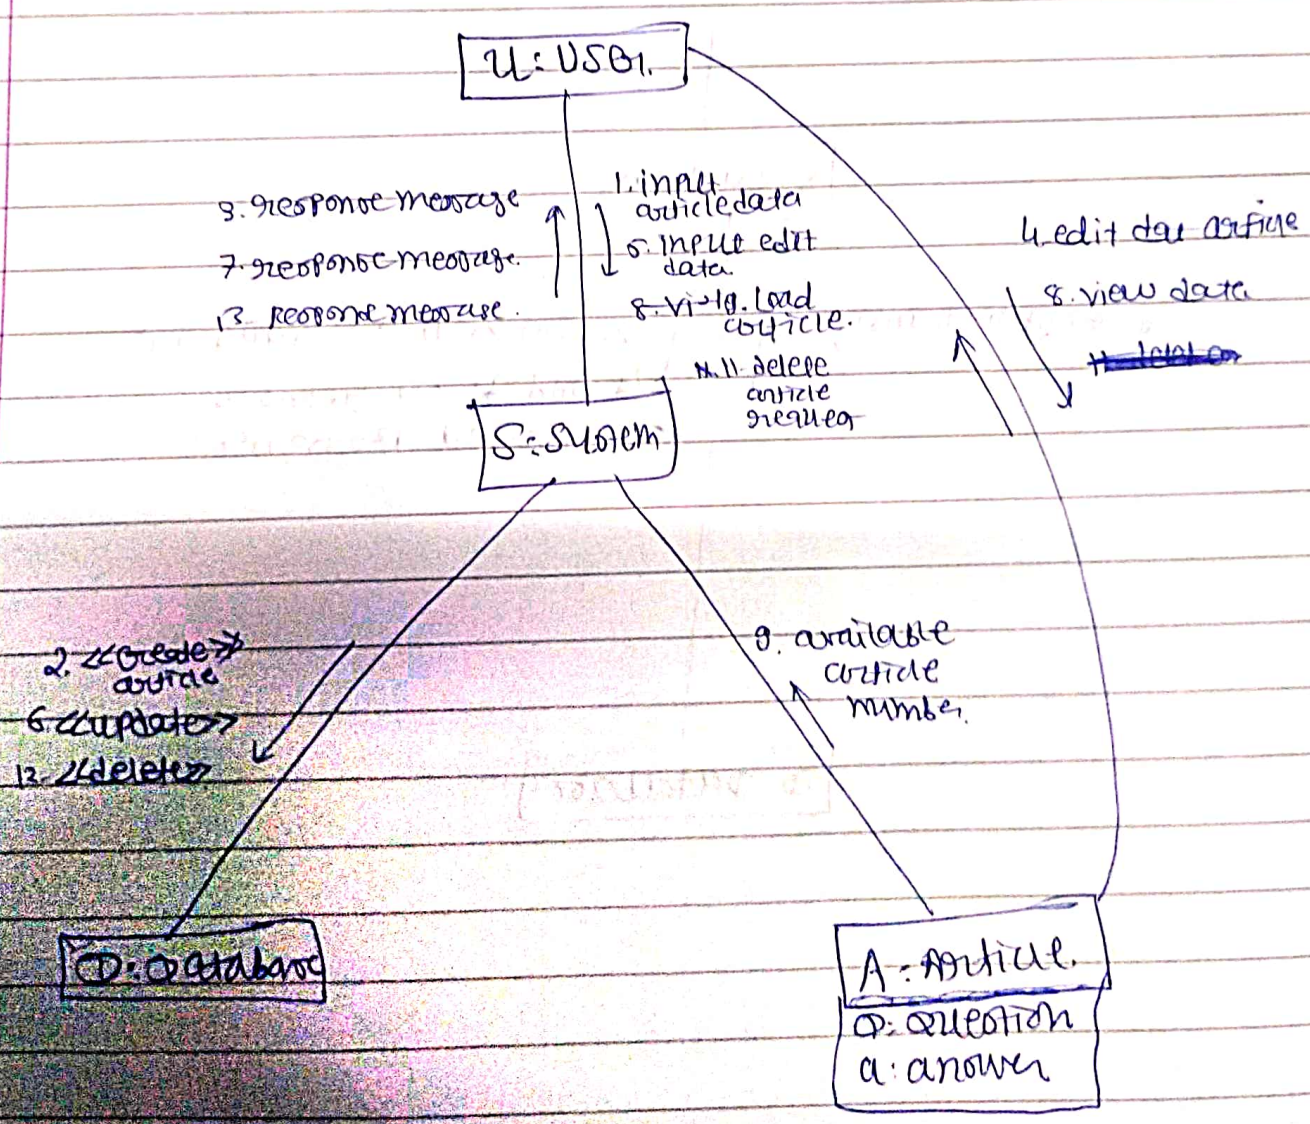 U: User.
3. response message
7. response message.
13. Response message.
1. input
article data
5. input edit
data.
8. load
article.
11. delete
article
request
4. edit article
8. view data
S: System
2. <<create>>
article
6. <<update>>
12. <<delete>>
9. available
article
number.
D: Database
A: Article.
Q: Question
a: answer